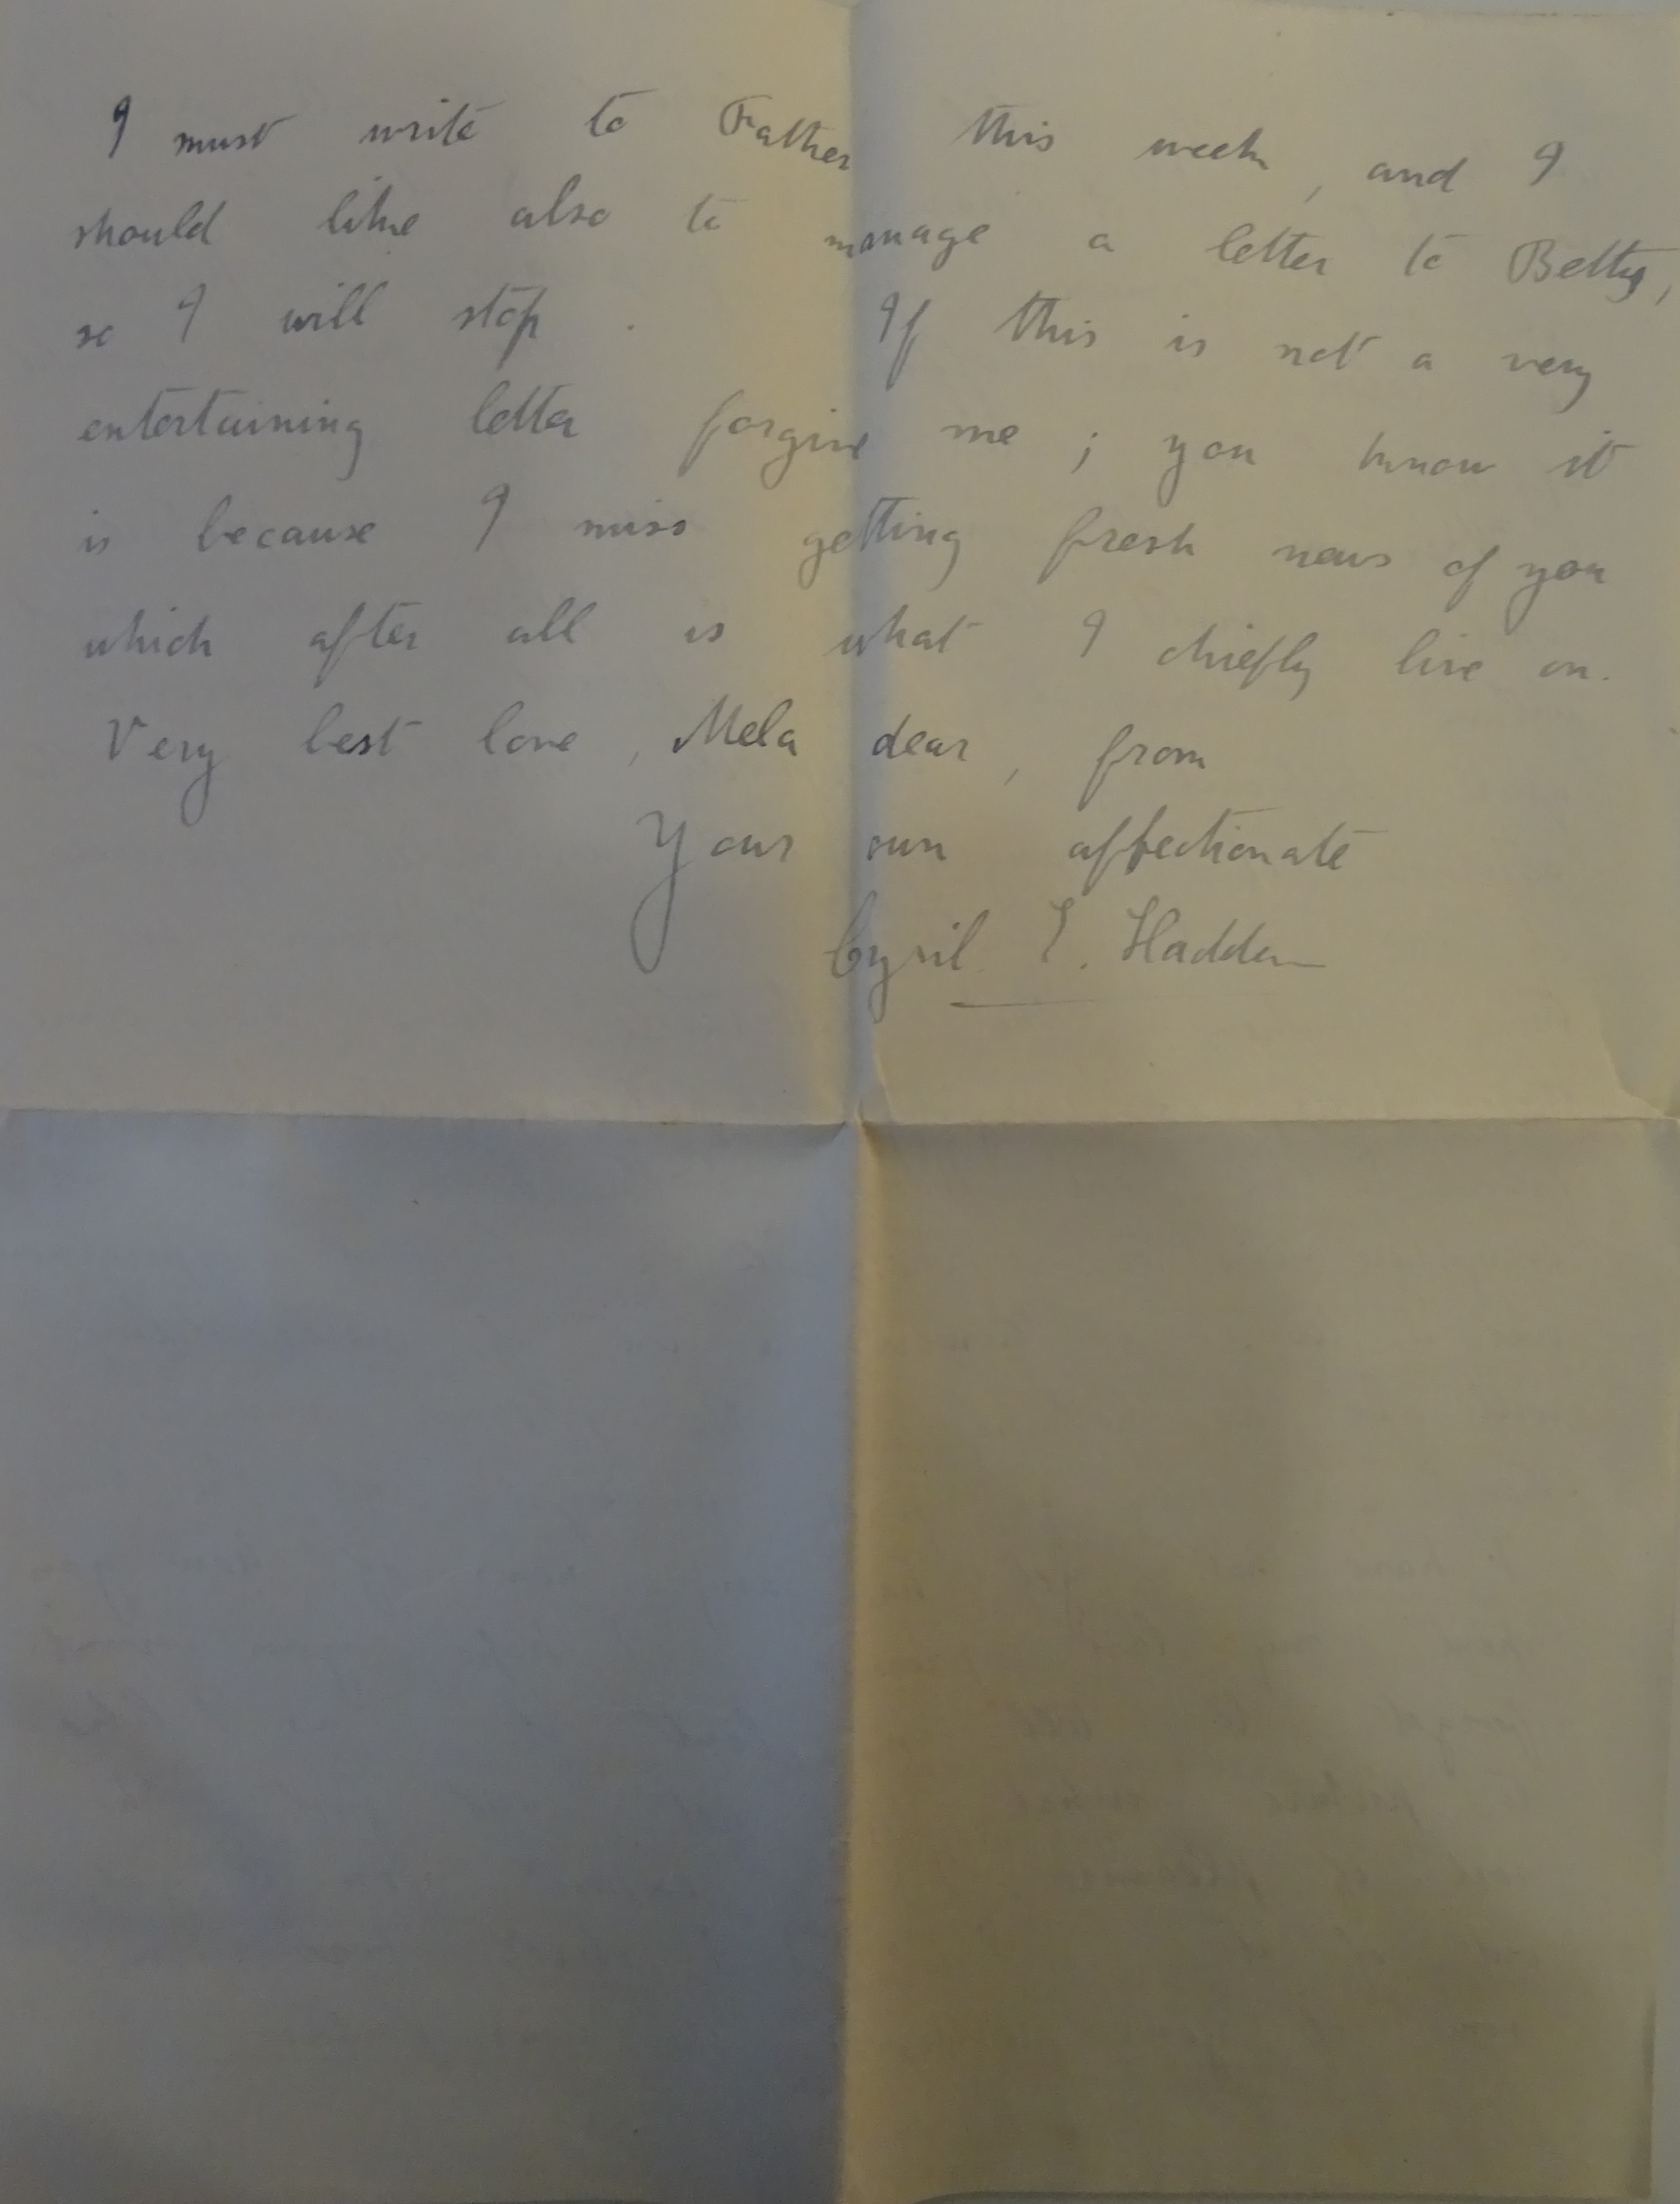 I must write to Father this week, and I
should like also to manage a letter to Betty,
so I will stop. If this is not a very
entertaining letter forgive me; you know it
is because I miss getting fresh news of you
which after all is what I chiefly live on.
Very best love, Mela dear, from
Your own affectionate
Cyril E. Hadden